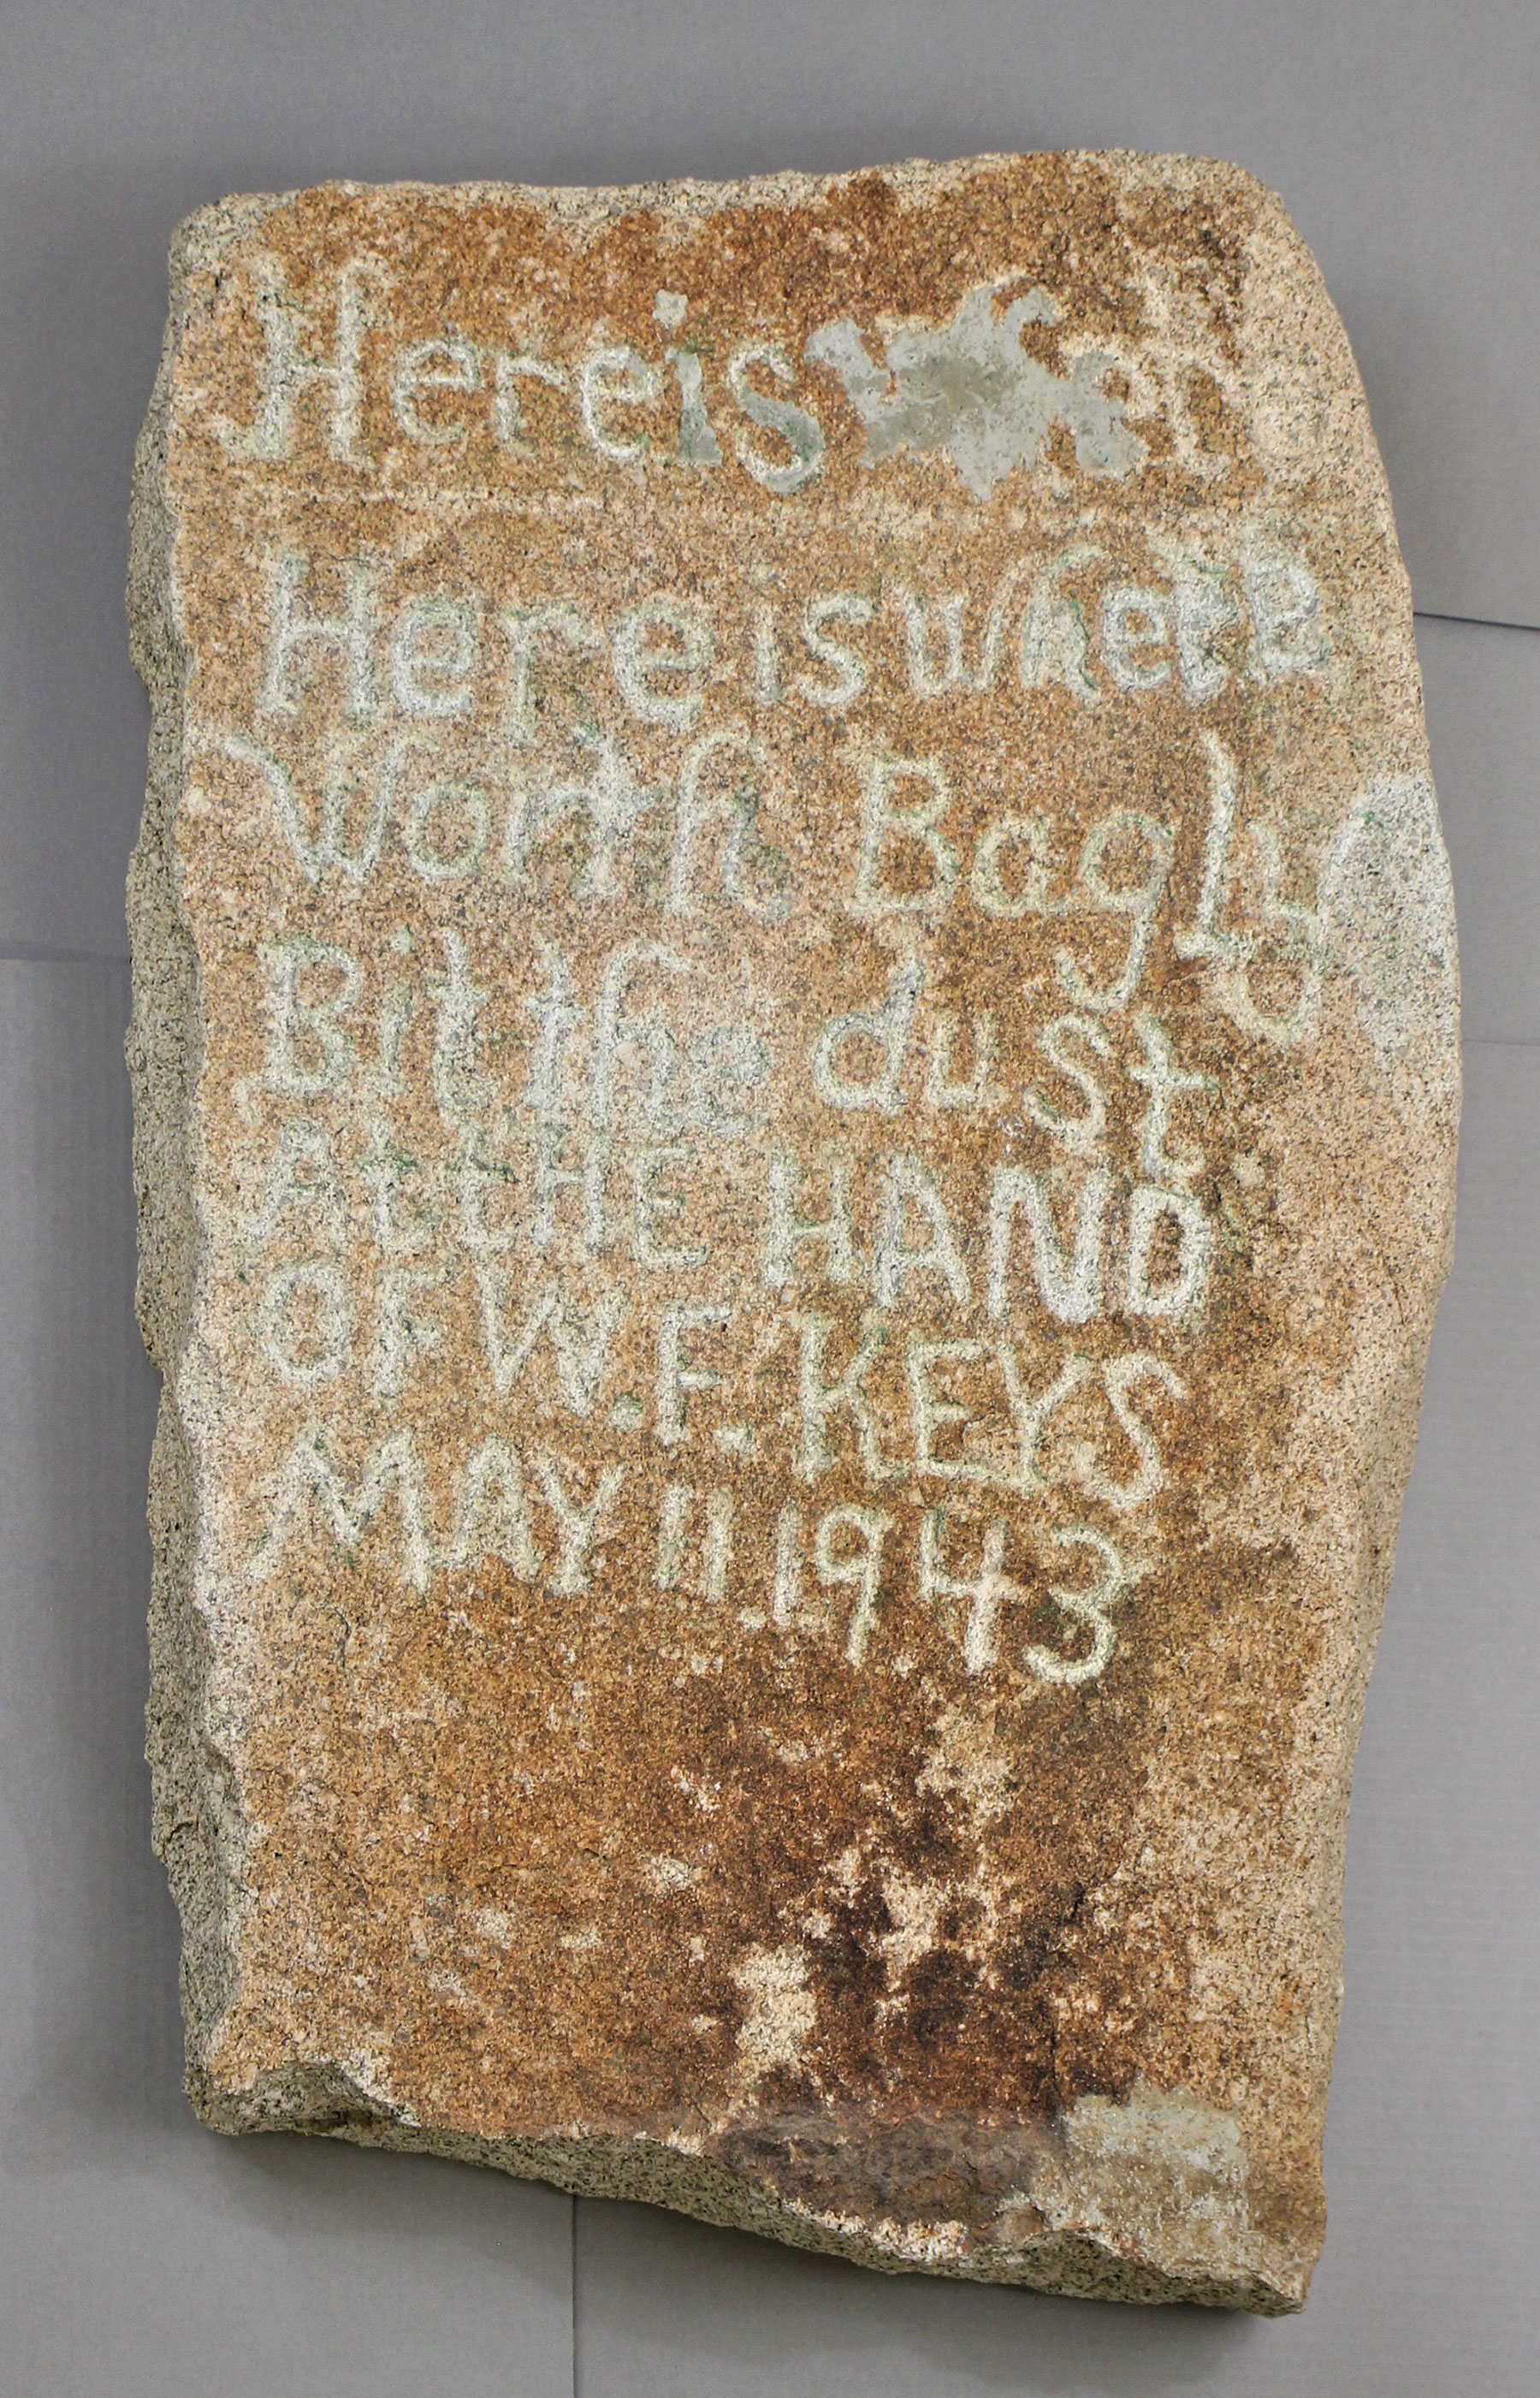 Here is
Here is where
Worth Bagly
Bit the dust
At tHE HAND
OF W. F. KEYS
MAY 11 1943